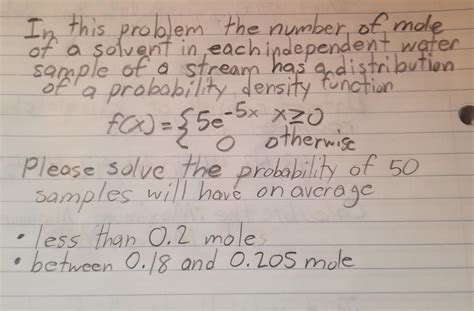 In this problem the number of mole
of a solvent in each independent water
sample of a stream has a distribution
of a probability density function
f(x) = { 5e^-5x x≥0
0 otherwise
Please solve the probability of 50
samples will have on average
• less than 0.2 moles
• between 0.18 and 0.205 mole